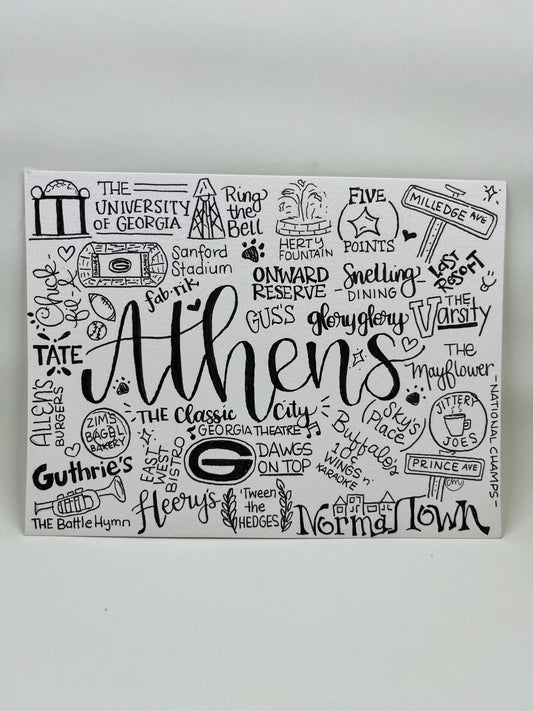 THE
UNIVERSITY
OF GEORGIA
Ring
the
Bell
HERTY
FOUNTAIN
FIVE
POINTS
MILLEDGE AVE
Chick-
fil-A
G
Sanford
Stadium
fab·rik
ONWARD
RESERVE
Snelling
DINING
LAST
RESORT
GUS'S
glory glory
THE
Varsity
TATE
Athens
THE
Mayflower
ALLENS
BURGERS
THE Classic City
GEORGIA THEATRE
ZIM'S
BAGEL
BAKERY
EAST
WEST
BISTRO
G
DAWGS
ON TOP
Buffalo's
WINGS 'n'
KARAOKE
Sky's
Place
JITTERY
JOES
-NATIONAL CHAMPS-
PRINCE AVE
Guthrie's
THE Battle Hymn
Heery's
'Tween
the
HEDGES
NormalTown